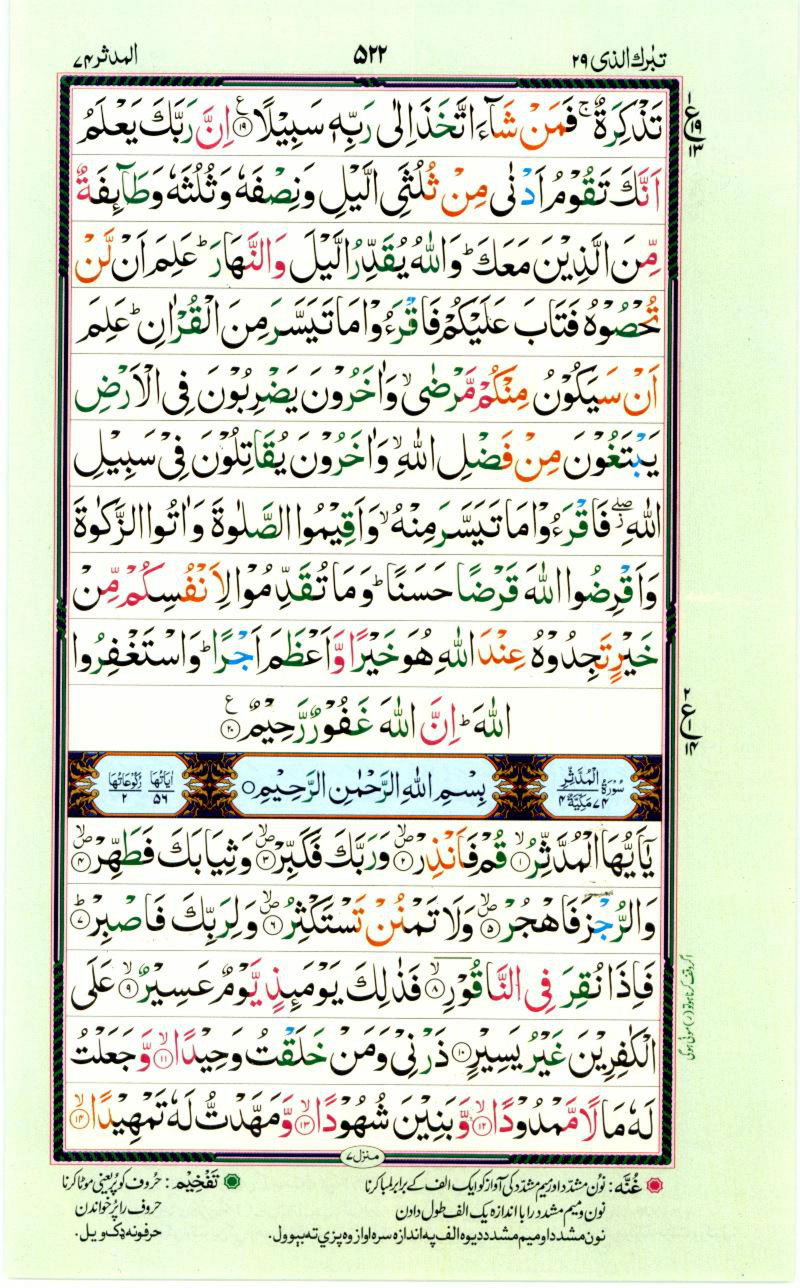 تبٰرك الذی ۲۹
۵۲۲
المدثر ۷۴
تَذْكِرَةٌ ۚ فَمَنْ شَآءَ اتَّخَذَ اِلٰى رَبِّهٖ سَبِيْلًا ﴿۱۹﴾ اِنَّ رَبَّكَ يَعْلَمُ
اَنَّكَ تَقُوْمُ اَدْنٰى مِنْ ثُلُثَىِ الَّيْلِ وَنِصْفَهٗ وَثُلُثَهٗ وَطَآئِفَةٌ
مِّنَ الَّذِيْنَ مَعَكَ ؕ وَاللّٰهُ يُقَدِّرُ الَّيْلَ وَالنَّهَارَ ؕ عَلِمَ اَنْ لَّنْ
تُحْصُوْهُ فَتَابَ عَلَيْكُمْ فَاقْرَءُوْا مَا تَيَسَّرَ مِنَ الْقُرْاٰنِ ؕ عَلِمَ
اَنْ سَيَكُوْنُ مِنْكُمْ مَّرْضٰى ۙ وَاٰخَرُوْنَ يَضْرِبُوْنَ فِى الْاَرْضِ
يَبْتَغُوْنَ مِنْ فَضْلِ اللّٰهِ ۙ وَاٰخَرُوْنَ يُقَاتِلُوْنَ فِىْ سَبِيْلِ
اللّٰهِ ۖ ز فَاقْرَءُوْا مَا تَيَسَّرَ مِنْهُ ۙ وَاَقِيْمُوا الصَّلٰوةَ وَاٰتُوا الزَّكٰوةَ
وَاَقْرِضُوا اللّٰهَ قَرْضًا حَسَنًا ؕ وَمَا تُقَدِّمُوْا لِاَنْفُسِكُمْ مِّنْ
خَيْرٍ تَجِدُوْهُ عِنْدَ اللّٰهِ هُوَ خَيْرًا وَّاَعْظَمَ اَجْرًا ؕ وَاسْتَغْفِرُوا
اللّٰهَ ؕ اِنَّ اللّٰهَ غَفُوْرٌ رَّحِيْمٌ ﴿۲۰﴾
ع ۱۹ ۱۳
ع ۲ ۱۴
سُوْرَةُ الْمُدَّثِّرِ مَكِّيَّةٌ ۷۴ ۴
بِسْمِ اللّٰهِ الرَّحْمٰنِ الرَّحِيْمِ
اٰيَاتُهَا ۵۶ رُكُوْعَاتُهَا ۲
يٰۤاَيُّهَا الْمُدَّثِّرُ ﴿۱﴾ قُمْ فَاَنْذِرْ ﴿۲﴾ وَرَبَّكَ فَكَبِّرْ ﴿۳﴾ وَثِيَابَكَ فَطَهِّرْ ﴿۴﴾
وَالرُّجْزَ فَاهْجُرْ ﴿۵﴾ وَلَا تَمْنُنْ تَسْتَكْثِرُ ﴿۶﴾ وَلِرَبِّكَ فَاصْبِرْ ﴿۷﴾
فَاِذَا نُقِرَ فِى النَّاقُوْرِ ﴿۸﴾ فَذٰلِكَ يَوْمَئِذٍ يَّوْمٌ عَسِيْرٌ ﴿۹﴾ عَلَى
الْكٰفِرِيْنَ غَيْرُ يَسِيْرٍ ﴿۱۰﴾ ذَرْنِىْ وَمَنْ خَلَقْتُ وَحِيْدًا ﴿۱۱﴾ وَّجَعَلْتُ
لَهٗ مَالًا مَّمْدُوْدًا ﴿۱۲﴾ وَّبَنِيْنَ شُهُوْدًا ﴿۱۳﴾ وَّمَهَّدْتُّ لَهٗ تَمْهِيْدًا ﴿۱۴﴾
منزل ۷
غُنَّه: نون مشدد اور میم مشدد کی آواز کو ایک الف کے برابر لمبا کرنا
نون و میم مشدد را با اندازه یک الف طول دادن
نون مشدد او میم مشدد دیوه الف په اندازه سره اواز وه پزي ته بېوول.
تَفْخِيْم: حروف کو پُر یعنی موٹا کرنا
حروف را پُر خواندن
حرفونه ډک ویل.